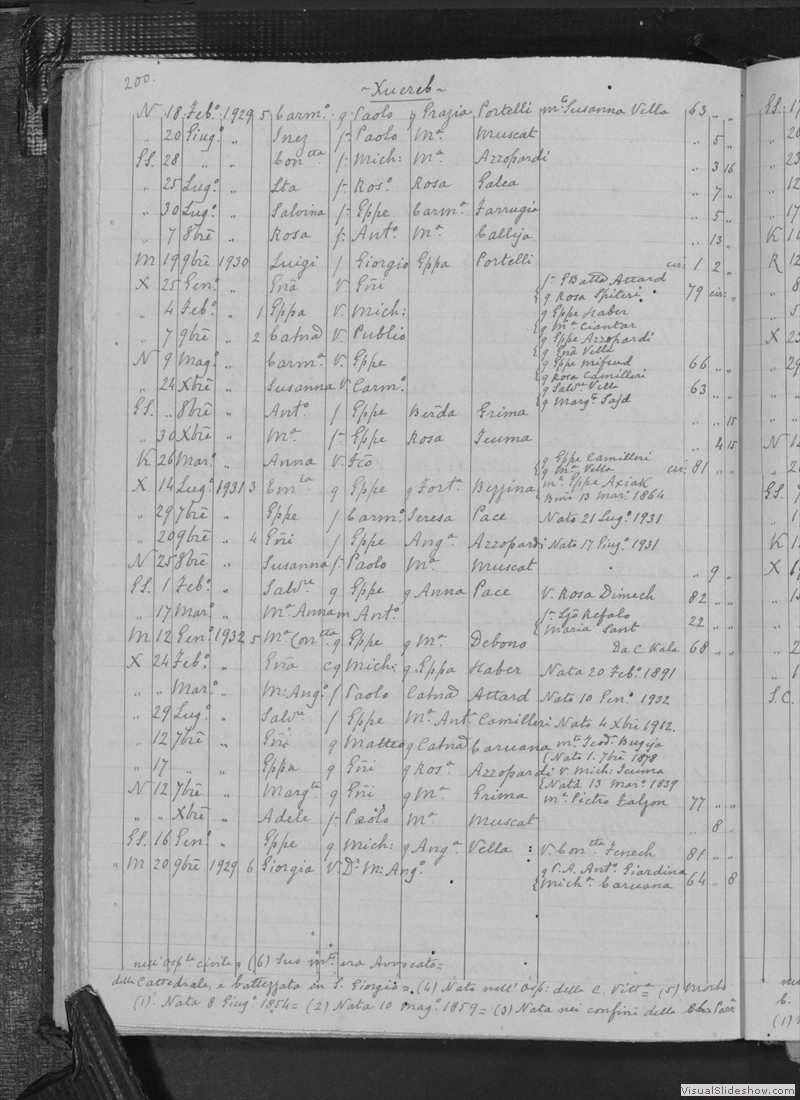 200.
~Xuereb~
N 18 Feb.º 1929 5 Carm.º q Paolo q Grazia Portelli m.ᵉ Susanna Vella 63 " "
" 20 Giug.º " Inez f. Paolo M.ª Muscat " 5 "
GS. 28 " " Con.tta f. Mich: M.ª Azzopardi " 3 16
" 25 Lug.º " Ita f. Ros.º Rosa Galea " 7 "
" 30 Lug.º " Salvina f. Gppe Carm.ª Farrugia " 5 "
" 7 8brē " Rosa f. Ant.º M.ª Calleja " 13 "
M 19 9brē 1930 Luigi f Giorgio Gppa Portelli cir: 1 2 "
X 25 Gen.º " Gnā V. Gñi { f. GBatta Attard
q Rosa Spiteri 79 cir: "
" 4 Feb.º " 1 Gppa V. Mich: { q Gppe Haber
q M.ª Ciantar
" 7 9brē 2 Catnā V. Publio { q Gppe Azzopardi
q Gnā Vella
N 9 Mag.º " Carm.ª V. Gppe { q Gppe Mifsud 66 " "
q Rosa Camilleri
" 24 Xbrē " Susanna V. Carm.º { q Salv.ʳᵉ Vella 63 " "
q Marg.ᵗᵃ Sajd
GS. " 8brē " Ant.º f Gppe Berda Grima " " 15
" 30 Xbrē " M.ª f. Gppe Rosa Tcuma " 4 15
K 26 Mar.º " Anna V. Fcō { q Gppe Camilleri
q M.ª Vella cir: 81 " "
X 14 Lug.º 1931 3 Em.la q Gppe q Fort.ª Bezzina { m.ª Gppe Axiak
13 Mar.º 1864
" 29 7brē " Gppe f Carm.º Teresa Pace Nato 21 Lug.º 1931
" 20 9brē 4 Gñi f Gppe Ang.ª Azzopardi Nato 17 Giug.º 1931
N 25 8brē " Susanna f. Paolo M.ª Muscat " 9 "
GS. 1 Feb.º " Salv.ʳᵉ q Gppe q Anna Pace V. Rosa Dimech 82 " "
" 17 Mar.º " M.ª Anna m Ant.º { f. Refalo
Maria Sant 22 " "
M 12 Gen.º 1932 5 M.ª Con.tta q Gppe q M.ª Debono Da C. Kala 68 " "
X 24 Feb.º " Gnā cq Mich: q Gppa Haber Nata 20 Feb.º 1891
" " Mar.º " M: Ang.º f Paolo Catnā Attard Nato 10 Gen.º 1932
" 29 Lug.º " Salv.ʳᵉ f Gppe M.ª Ant. Camilleri Nato 4 Xbrē 1912.
" 12 7brē " Gñi q Matteo q Catnā Caruana m.ᵗᵒ Teod.ª Bugeja
{ Nato 1. 7brē 1878
" 17 " " Gppa q Gñi q Ros.ª Azzopardi V. Mich: Tcuma
{ Nata 13 Mar.º 1839
N 12 7brē " Marg.ta q Gñi q M.ª Grima m.ª Pietro Falzon 77 " "
" " Xbrē " Adele f. Paolo M.ª Muscat " 8 "
GS. 16 Gen.º " Gppe q Mich: q Ang.ª Vella : V. Con.tta Fenech 81 " "
" M 20 9brē 1929 6 Giorgia V. D.ʳ M: Ang.º { q P.A. Ant.º Giardina
Mich.ª Caruana 64 " 8
nell' Osp.le civile = (6) Suo m.to era Avvocato =
della Cattedrale, e battezzata in S. Giorgio = (4) Nato nell' Osp: della C. Vitt.ª = (5) Morto
(1). Nata 8 Giug.º 1854 = (2) Nata 10 Mag.º 1859 = (3) Nata nei confini della Par.ª
VisualSlideshow.com